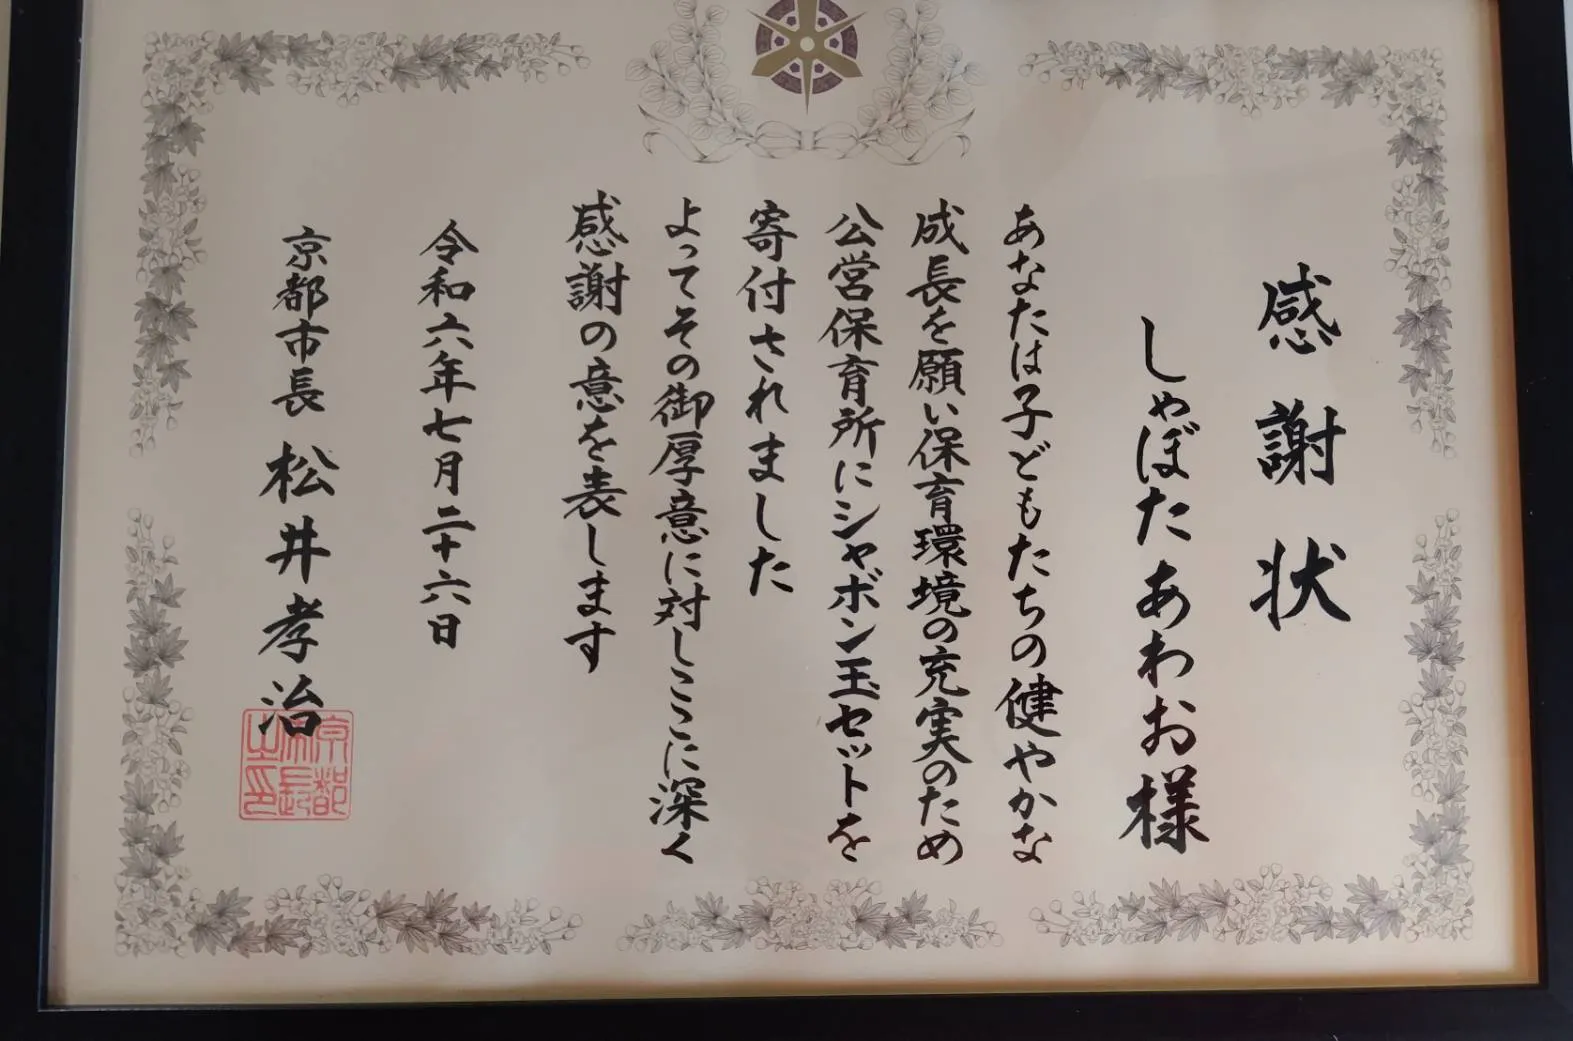 感謝状
しゃぼたあわお様
あなたは子どもたちの健やかな
成長を願い保育環境の充実のため
公営保育所にシャボン玉セットを
寄付されました
よってその御厚意に対しここに深く
感謝の意を表します
令和六年七月二十六日
京都市長 松井孝治
京都市長之印